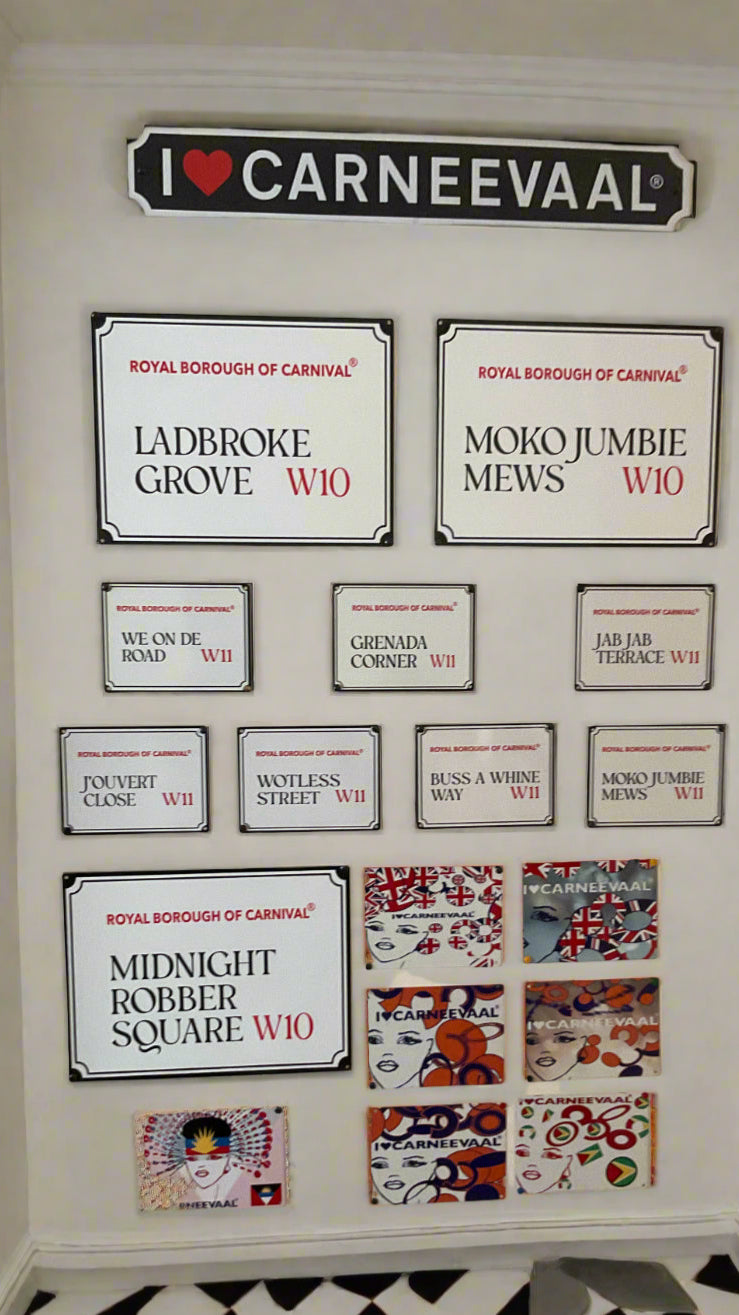 I ❤ CARNEEVAAL®
ROYAL BOROUGH OF CARNIVAL®
LADBROKE
GROVE W10
ROYAL BOROUGH OF CARNIVAL®
MOKO JUMBIE
MEWS W10
ROYAL BOROUGH OF CARNIVAL®
WE ON DE
ROAD W11
ROYAL BOROUGH OF CARNIVAL®
GRENADA
CORNER W11
ROYAL BOROUGH OF CARNIVAL®
JAB JAB
TERRACE W11
ROYAL BOROUGH OF CARNIVAL®
J'OUVERT
CLOSE W11
ROYAL BOROUGH OF CARNIVAL®
WOTLESS
STREET W11
ROYAL BOROUGH OF CARNIVAL®
BUSS A WHINE
WAY W11
ROYAL BOROUGH OF CARNIVAL®
MOKO JUMBIE
MEWS W11
ROYAL BOROUGH OF CARNIVAL®
MIDNIGHT
ROBBER
SQUARE W10
I♥CARNEEVAAL
I♥CARNEEVAAL
I♥CARNEEVAAL
I♥CARNEEVAAL
I♥CARNEEVAAL
I♥CARNEEVAAL